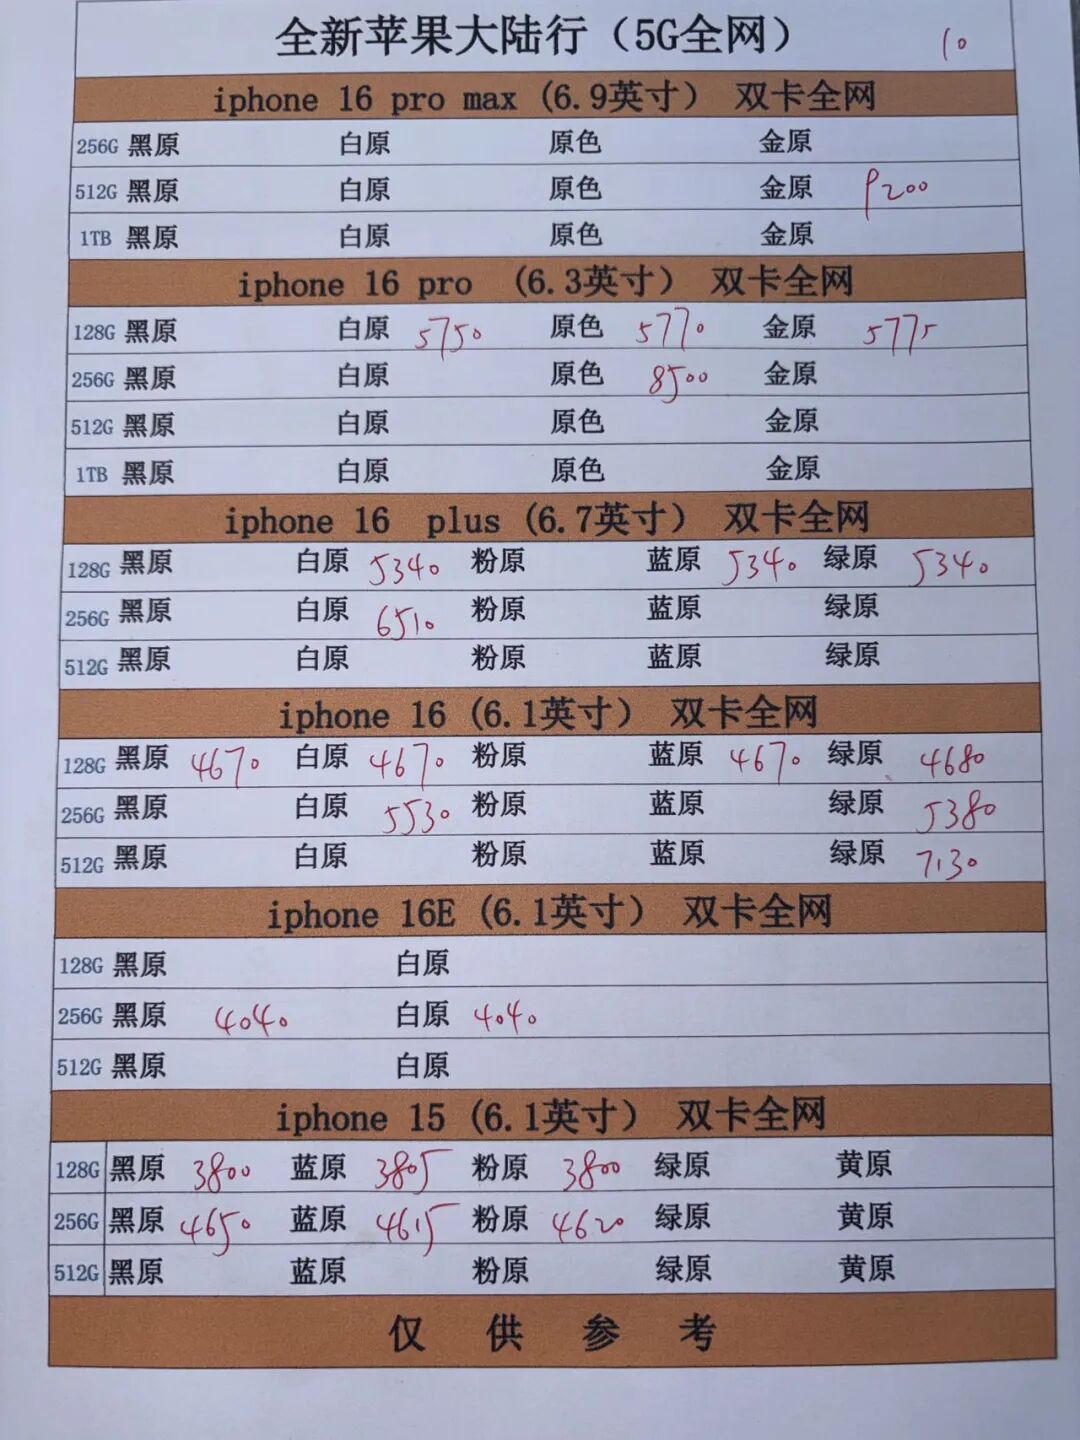 全新苹果大陆行（5G全网） 10
iphone 16 pro max (6.9英寸） 双卡全网
256G 黑原 白原 原色 金原
512G 黑原 白原 原色 金原 9200
1TB 黑原 白原 原色 金原
iphone 16 pro （6.3英寸） 双卡全网
128G 黑原 白原 5750 原色 5770 金原 5775
256G 黑原 白原 原色 8500 金原
512G 黑原 白原 原色 金原
1TB 黑原 白原 原色 金原
iphone 16 plus (6.7英寸） 双卡全网
128G 黑原 白原 5340 粉原 蓝原 5340 绿原 5340
256G 黑原 白原 6510 粉原 蓝原 绿原
512G 黑原 白原 粉原 蓝原 绿原
iphone 16 (6.1英寸） 双卡全网
128G 黑原 4670 白原 4670 粉原 蓝原 4670 绿原 4680
256G 黑原 白原 5530 粉原 蓝原 绿原 5380
512G 黑原 白原 粉原 蓝原 绿原 7130
iphone 16E (6.1英寸） 双卡全网
128G 黑原 白原
256G 黑原 4040 白原 4040
512G 黑原 白原
iphone 15 (6.1英寸） 双卡全网
128G 黑原 3800 蓝原 3805 粉原 3800 绿原 黄原
256G 黑原 4650 蓝原 4615 粉原 4620 绿原 黄原
512G 黑原 蓝原 粉原 绿原 黄原
仅 供 参 考